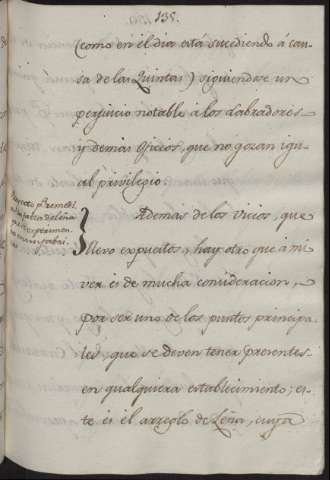 135.
(como en el dia está sucediendo á cau-
sa de las Quintas) siguiendose un
perjuicio notable a los Labradores
y demas Oficios, que no gozan igu-
al privilegio.
Ademas de los vicios, que
llevo expuestos, hay otro que á mi
ver es de mucha consideracion,
por ser uno de los puntos principa-
les, que se deven tener presentes
en qualquiera establecimiento; es-
te es el arreglo de Leña, cuya
falta de leña